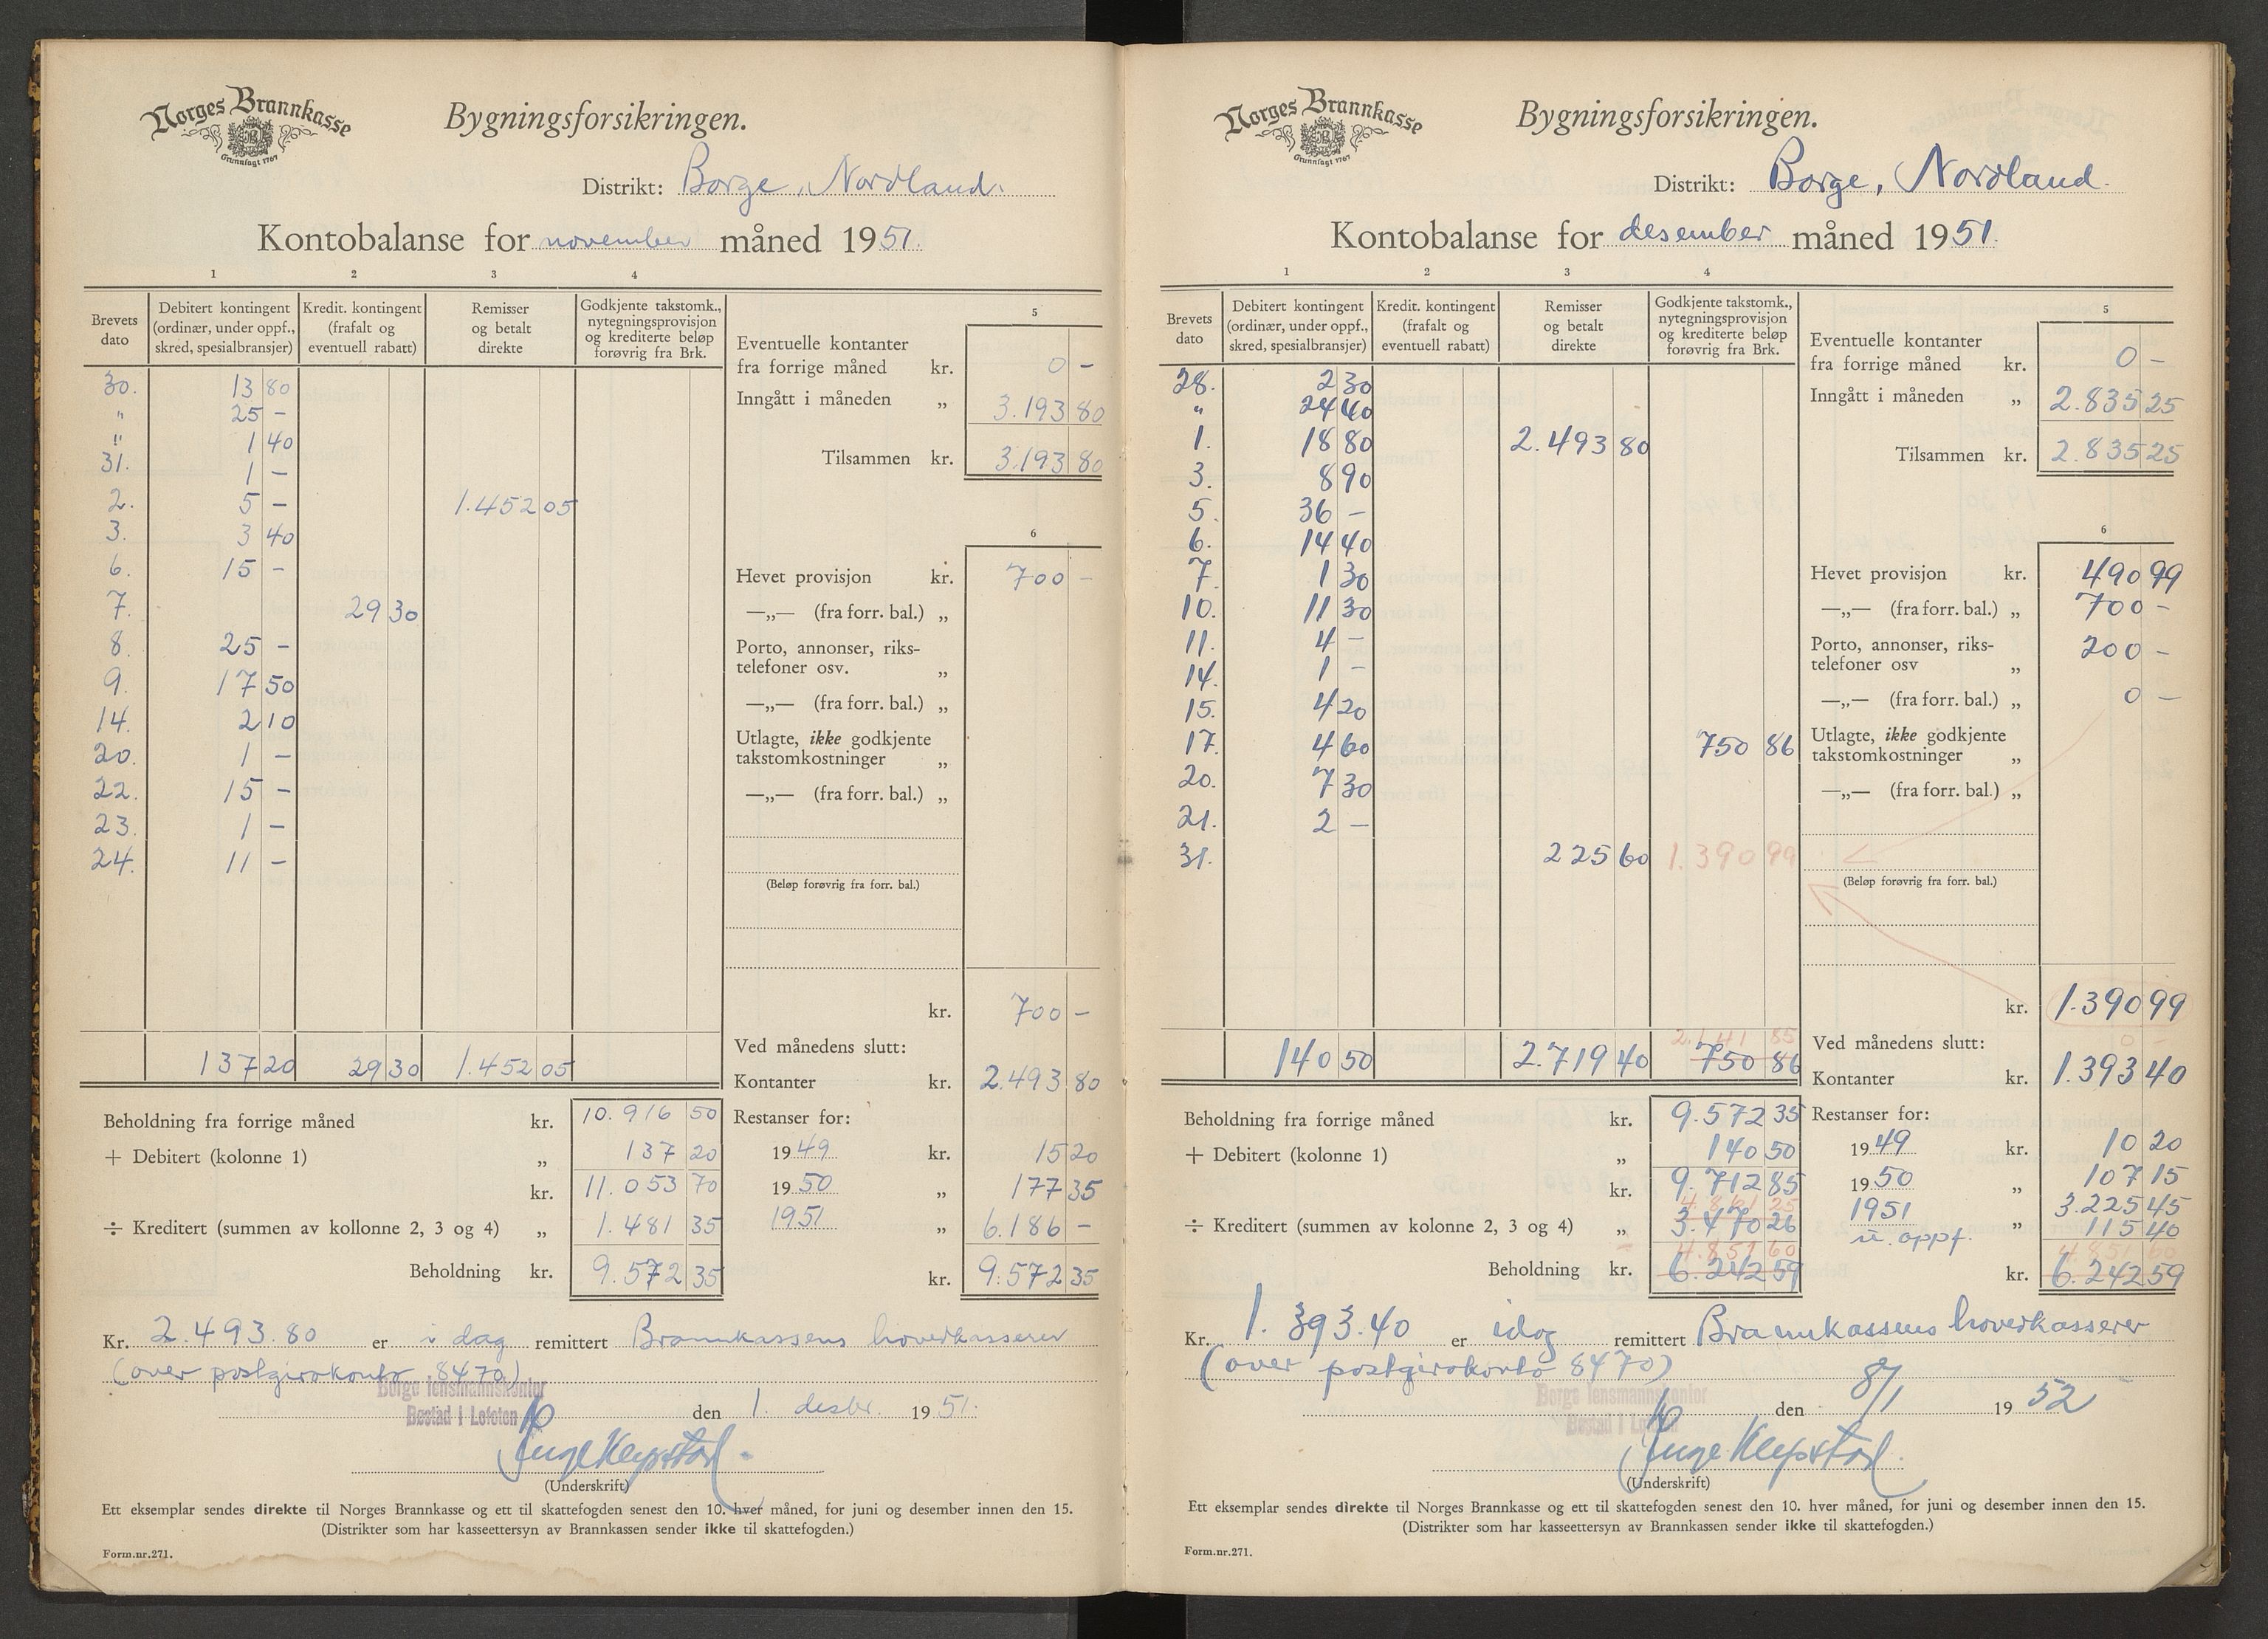 Norges Brannkasse
Grunnlagt 1767
Bygningsforsikringen.
Distrikt: Borge, Nordland.
Kontobalanse for november måned 1951.
1 2 3 4
Brevets dato
Debitert kontingent (ordinær, under oppf., skred, spesialbransjer)
Kredit. kontingent (frafalt og eventuell rabatt)
Remisser og betalt direkte
Godkjente takstomk., nytegningsprovisjon og krediterte beløp forøvrig fra Brk.
30. 13 80
" 25 -
" 1 40
31. 1 -
2. 5 - 1.452 05
3. 3 40
6. 15 -
7. 29 30
8. 25 -
9. 17 50
14. 2 10
20. 1 -
22. 15 -
23. 1 -
24. 11 -
137 20 29 30 1.452 05
5
Eventuelle kontanter
fra forrige måned kr. 0 -
Inngått i måneden „ 3.193 80
Tilsammen kr. 3.193 80
6
Hevet provisjon kr. 700 -
—„— (fra forr. bal.) „
Porto, annonser, riks-
telefoner osv. „
—„— (fra forr. bal.) „
Utlagte, ikke godkjente
takstomkostninger „
—„— (fra forr. bal.) „
(Beløp forøvrig fra forr. bal.)
kr. 700 -
Ved månedens slutt:
Kontanter kr. 2.493 80
Restanser for:
1949 kr. 15 20
1950 „ 177 35
1951 „ 6.186 -
kr. 9.572 35
Beholdning fra forrige måned kr. 10.916 50
+ Debitert (kolonne 1) „ 137 20
kr. 11.053 70
÷ Kreditert (summen av kollonne 2, 3 og 4) „ 1.481 35
Beholdning kr. 9.572 35
Kr. 2.493.80 er i dag remittert Brannkassens hovedkasserer
(over postgirokonto 8470)
Borge lensmannskontor
Bøstad i Lofoten
den 1. desbr. 1951.
Inge Klepstad.
(Underskrift)
Ett eksemplar sendes direkte til Norges Brannkasse og ett til skattefogden senest den 10. hver måned, for juni og desember innen den 15.
(Distrikter som har kasseettersyn av Brannkassen sender ikke til skattefogden.)
Form.nr.271.
Norges Brannkasse
Grunnlagt 1767
Bygningsforsikringen.
Distrikt: Borge, Nordland.
Kontobalanse for desember måned 1951.
1 2 3 4
Brevets dato
Debitert kontingent (ordinær, under oppf., skred, spesialbransjer)
Kredit. kontingent (frafalt og eventuell rabatt)
Remisser og betalt direkte
Godkjente takstomk., nytegningsprovisjon og krediterte beløp forøvrig fra Brk.
28. 2 30
" 24 40
1. 18 80 2.493 80
3. 8 90
5. 36 -
6. 14 40
7. 1 30
10. 11 30
11. 4 -
14. 1 -
15. 4 20
17. 4 60 750 86
20. 7 30
21. 2 -
31. 225 60 1.390 99
2.141 85
140 50 2.719 40 750 86
5
Eventuelle kontanter
fra forrige måned kr. 0 -
Inngått i måneden „ 2.835 25
Tilsammen kr. 2.835 25
6
Hevet provisjon kr. 490 99
—„— (fra forr. bal.) „ 700 -
Porto, annonser, riks-
telefoner osv „ 200 -
—„— (fra forr. bal.) „ 0 -
Utlagte, ikke godkjente
takstomkostninger „
—„— (fra forr. bal.) „
(Beløp forøvrig fra forr. bal.)
kr. 1.390 99
Ved månedens slutt: 0 -
Kontanter kr. 1.393 40
Restanser for:
1949 kr. 10 20
1950 „ 107 15
1951 „ 3.225 45
u. oppf. 115 40
4.851 60
kr. 6.242 59
Beholdning fra forrige måned kr. 9.572 35
+ Debitert (kolonne 1) „ 140 50
kr. 9.712 85
4.861 25
÷ Kreditert (summen av kolonne 2, 3 og 4) „ 3.470 26
4.851 60
Beholdning kr. 6.242 59
Kr. 1.393.40 er idag remittert Brannkassens hovedkasserer
(over postgirokonto 8470)
Borge lensmannskontor
Bøstad i Lofoten
den 8/1 1952
Inge Klepstad.
(Underskrift)
Ett eksemplar sendes direkte til Norges Brannkasse og ett til skattefogden senest den 10. hver måned, for juni og desember innen den 15.
(Distrikter som har kasseettersyn av Brannkassen sender ikke til skattefogden.)
Form.nr.271.